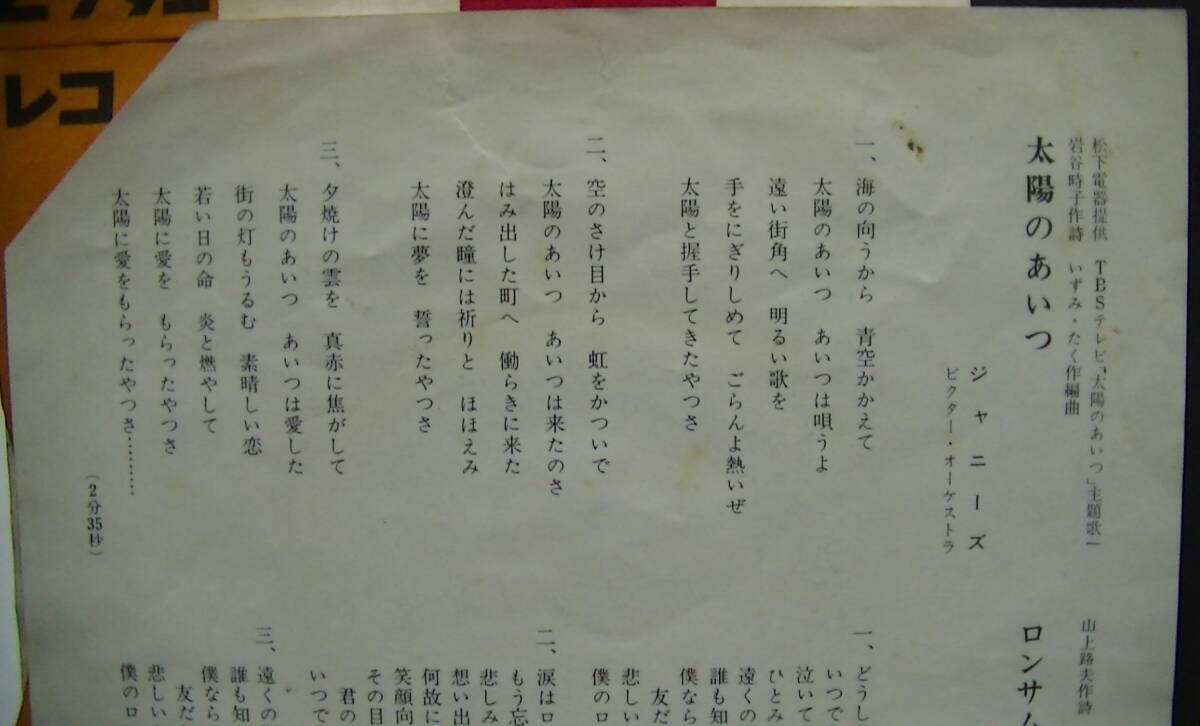 レコ
松下電器提供 TBSテレビ「太陽のあいつ」主題歌
岩谷時子作詩 いずみ・たく作編曲
太陽のあいつ
ジャニーズ
ビクター・オーケストラ
一、海の向うから 青空かかえて
太陽のあいつ あいつは唄うよ
遠い街角へ 明るい歌を
手をにぎりしめて ごらんよ熱いぜ
太陽と握手してきたやつさ
二、空のさけ目から 虹をかついで
太陽のあいつ あいつは来たのさ
はみ出した町へ 働らきに来た
澄んだ瞳には祈りと ほほえみ
太陽に夢を 誓ったやつさ
三、夕焼けの雲を 真赤に焦がして
太陽のあいつ あいつは愛した
街の灯もうるむ 素晴しい恋
若い日の命 炎と燃やして
太陽に愛を もらったやつさ
太陽に愛をもらったやつさ…………
(2分35秒)
山上路夫作詩
ロンサム
一、どうし
いつで
泣いて
ひとみ
遠くの
誰も知
僕なら
友だ
悲しい
僕のロ
二、涙はロ
もう忘
悲しみ
想い出
何故に
笑顔向
その目
君の
いつで
三、遠くの
誰も知
僕なら
友だ
悲しい
僕のロ